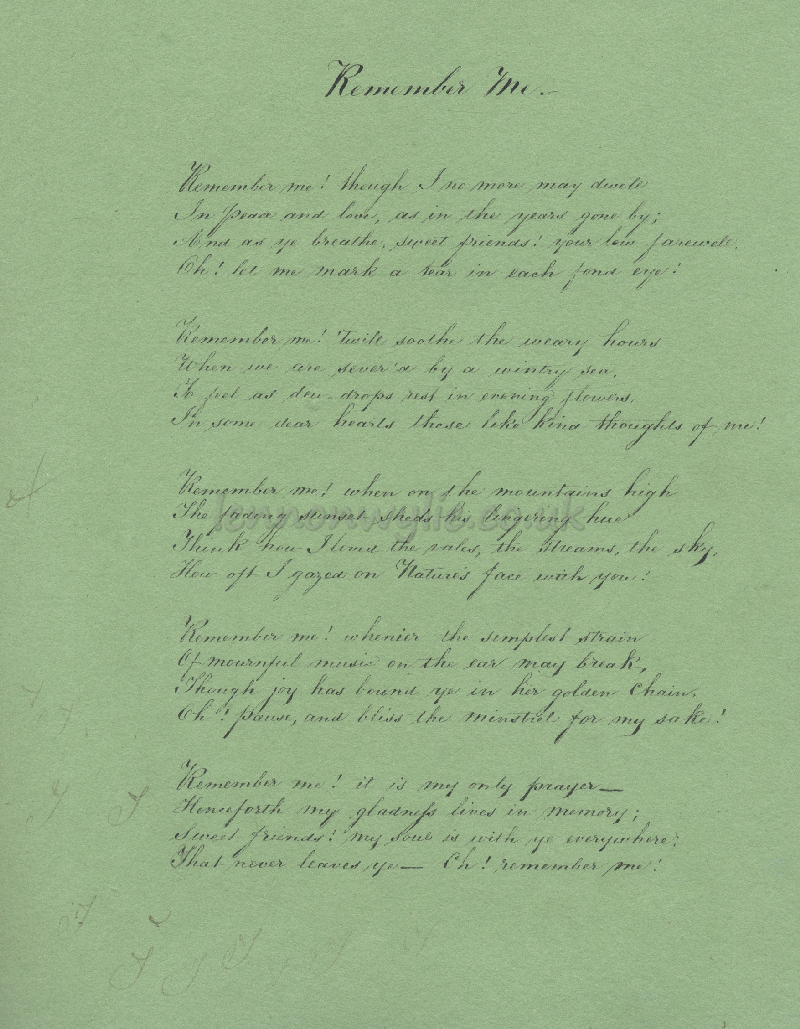 Remember Me.
Remember me! though I no more may dwell
In peace and love, as in the years gone by;
And as ye breathe, sweet friends! your low farewell,
Oh! let me mark a tear in each fond eye!
Remember me! 'twill soothe the weary hours
When we are sever'd by a wintry sea,
To feel as dew-drops rest in evening flowers,
In some dear hearts those like kind thoughts of me!
Remember me! when on the mountains high
The fading sunset sheds his lingering hue
Think how I loved the vales, the streams, the sky,
How oft I gazed on Nature's face with you!
lennonwylie.co.uk
Remember me! whene'er the simplest strain
Of mournful music on the ear may break,
Though joy has bound ye in her golden Chain,
Oh! pause, and bliss the minstrel for my sake!
Remember me! it is my only prayer—
Henceforth my gladness lives in memory;
Sweet friends! my soul is with ye everywhere;
That never leaves ye— Oh! remember me!